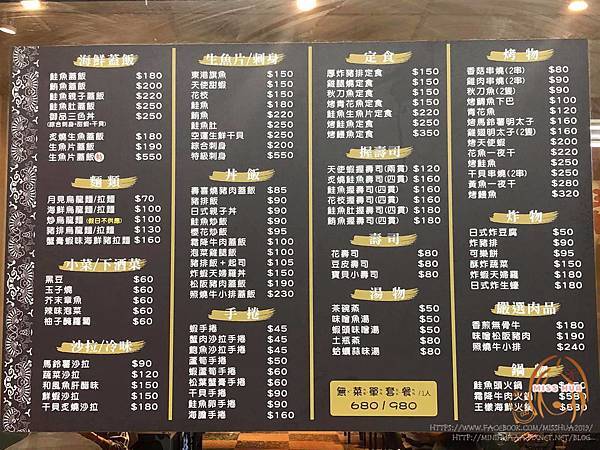 海鮮蓋飯
鮭魚蓋飯 $180
鮪魚蓋飯 $200
鮭魚親子蓋飯 $220
鮭魚肚蓋飯 $220
御品三色丼 $250
炙燒生魚蓋飯 $180
生魚片蓋飯 $190
生魚片蓋飯 $550
麵類
月見烏龍麵/拉麵 $70
海鮮烏龍麵/拉麵 $100
炒烏龍麵(假日不供應) $100
豬排烏龍麵/拉麵 $130
蟹膏蝦味海鮮豬拉麵 $160
小菜/下酒菜
黑豆 $60
玉子燒 $60
芥末章魚 $60
辣味泡菜 $60
柚子醃蘿蔔 $60
沙拉/冷味
馬鈴薯沙拉 $90
蔬菜沙拉 $120
和風魚肝醋味 $150
鮮蝦沙拉 $150
干貝炙燒沙拉 $180
生魚片/刺身
東港旗魚 $150
天使甜蝦 $150
花枝 $150
鮭魚 $180
鮪魚 $220
鮭魚肚 $250
空運生鮮干貝 $250
綜合刺身 $200
特級刺身 $550
丼飯
壽喜燒豬肉蓋飯 $85
豬排飯 $90
日式親子丼 $90
鮭魚炒飯 $90
櫻花炒飯 $90
霜降牛肉蓋飯 $100
泡菜雞腿飯 $100
豬排飯+起司 $105
炸蝦天婦羅丼 $150
松阪豬肉蓋飯 $190
照燒牛小排蓋飯 $230
手捲
蝦手捲 $45
蟹肉沙拉手捲 $45
鮑魚沙拉手捲 $45
蘆筍手捲 $50
蝦蘆筍手捲 $60
松葉蟹膏手捲 $60
干貝手捲 $90
鮭魚卵手捲 $90
海膽手捲 $160
定食
厚炸豬排定食 $150
雞腿燒定食 $150
秋刀魚定食 $150
烤青花魚定食 $150
鮭魚生魚片定食 $220
烤鮭魚定食 $250
烤鰻魚定食 $350
握壽司
天使蝦握壽司(兩貫) $120
炙燒鮭魚壽司(四貫) $160
鮭魚握壽司(四貫) $160
花枝握壽司(四貫) $160
鮭魚肚握壽司(四貫) $180
鮪魚握壽司(四貫) $180
壽司
花壽司 $50
豆皮壽司 $50
寶貝小壽司 $80
湯物
茶碗蒸 $50
味噌魚湯 $50
蝦頭味噌湯 $50
土瓶蒸 $80
蛤蠣蒜味湯 $80
無菜單套餐/1人
680/980
烤物
香菇串燒(2串) $80
雞肉串燒(2串) $90
秋刀魚(2隻) $90
烤鯖魚下巴 $100
青花魚 $120
烤馬鈴薯明太子 $160
雞翅明太子(2隻) $160
烤天使蝦 $200
花魚一夜干 $220
烤鮭魚 $250
干貝串燒(2串) $250
黃魚一夜干 $280
烤鰻魚 $320
炸物
日式炸豆腐 $50
炸豬排 $90
可樂餅 $95
酥炸蔬菜 $150
炸蝦天婦羅 $180
日式炸生蠔 $180
嚴選肉品
香煎無骨牛 $180
味噌松阪豬肉 $190
照燒牛小排 $240
鍋
鮭魚頭火鍋
霜降牛肉火鍋
王樣海鮮火鍋
MISS HUA
HTTPS://WWW.FACEBOOK.COM/MISSHUA2019/